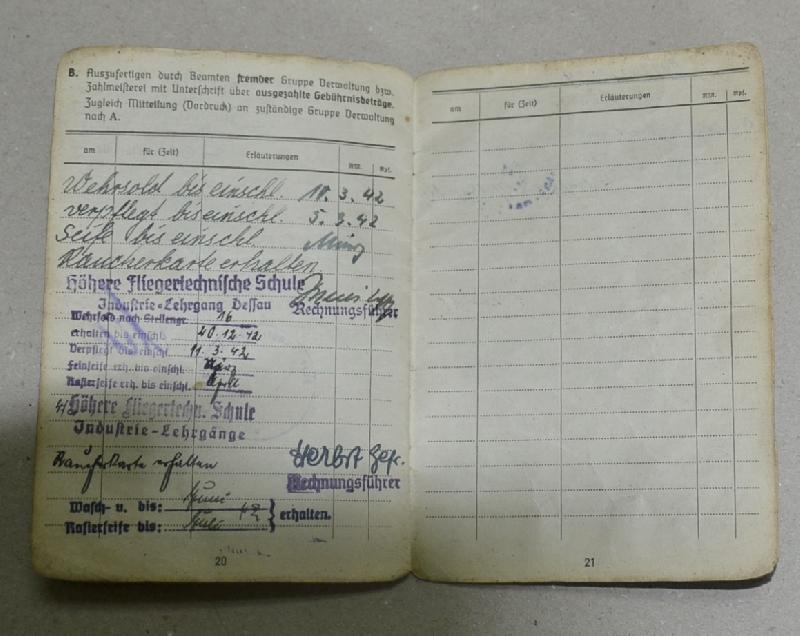 B. Auszufertigen durch Beamten fremder Gruppe Verwaltung bzw.
Zahlmeisterei mit Unterschrift über ausgezahlte Gebührnisbeträge.
Zugleich Mitteilung (Vordruck) an zuständige Gruppe Verwaltung
nach A.
am für (Zeit) Erläuterungen RM. Rpf.
Wehrsold bis einschl. 10.3.42
verpflegt bis einschl. 5.3.42
Seife bis einschl. März
Raucherkarte erhalten
Höhere Fliegertechnische Schule
Industrie-Lehrgang Dessau Rechnungsführer
Wehrsold nach Stellengr. 16
erhalten bis einschl. 20.12.42
Verpflegt bis einschl. 11.3.42
Feinseife erh. bis einschl. März
Rasierseife erh. bis einschl. April
Höhere Fliegertechn. Schule
Industrie-Lehrgänge
Raucherkarte erhalten Herbst Gefr.
Rechnungsführer
Wasch- u. bis: Juni 42 } erhalten.
Rasierseife bis: Juli
20
am für (Zeit) Erläuterungen RM. Rpf.
21